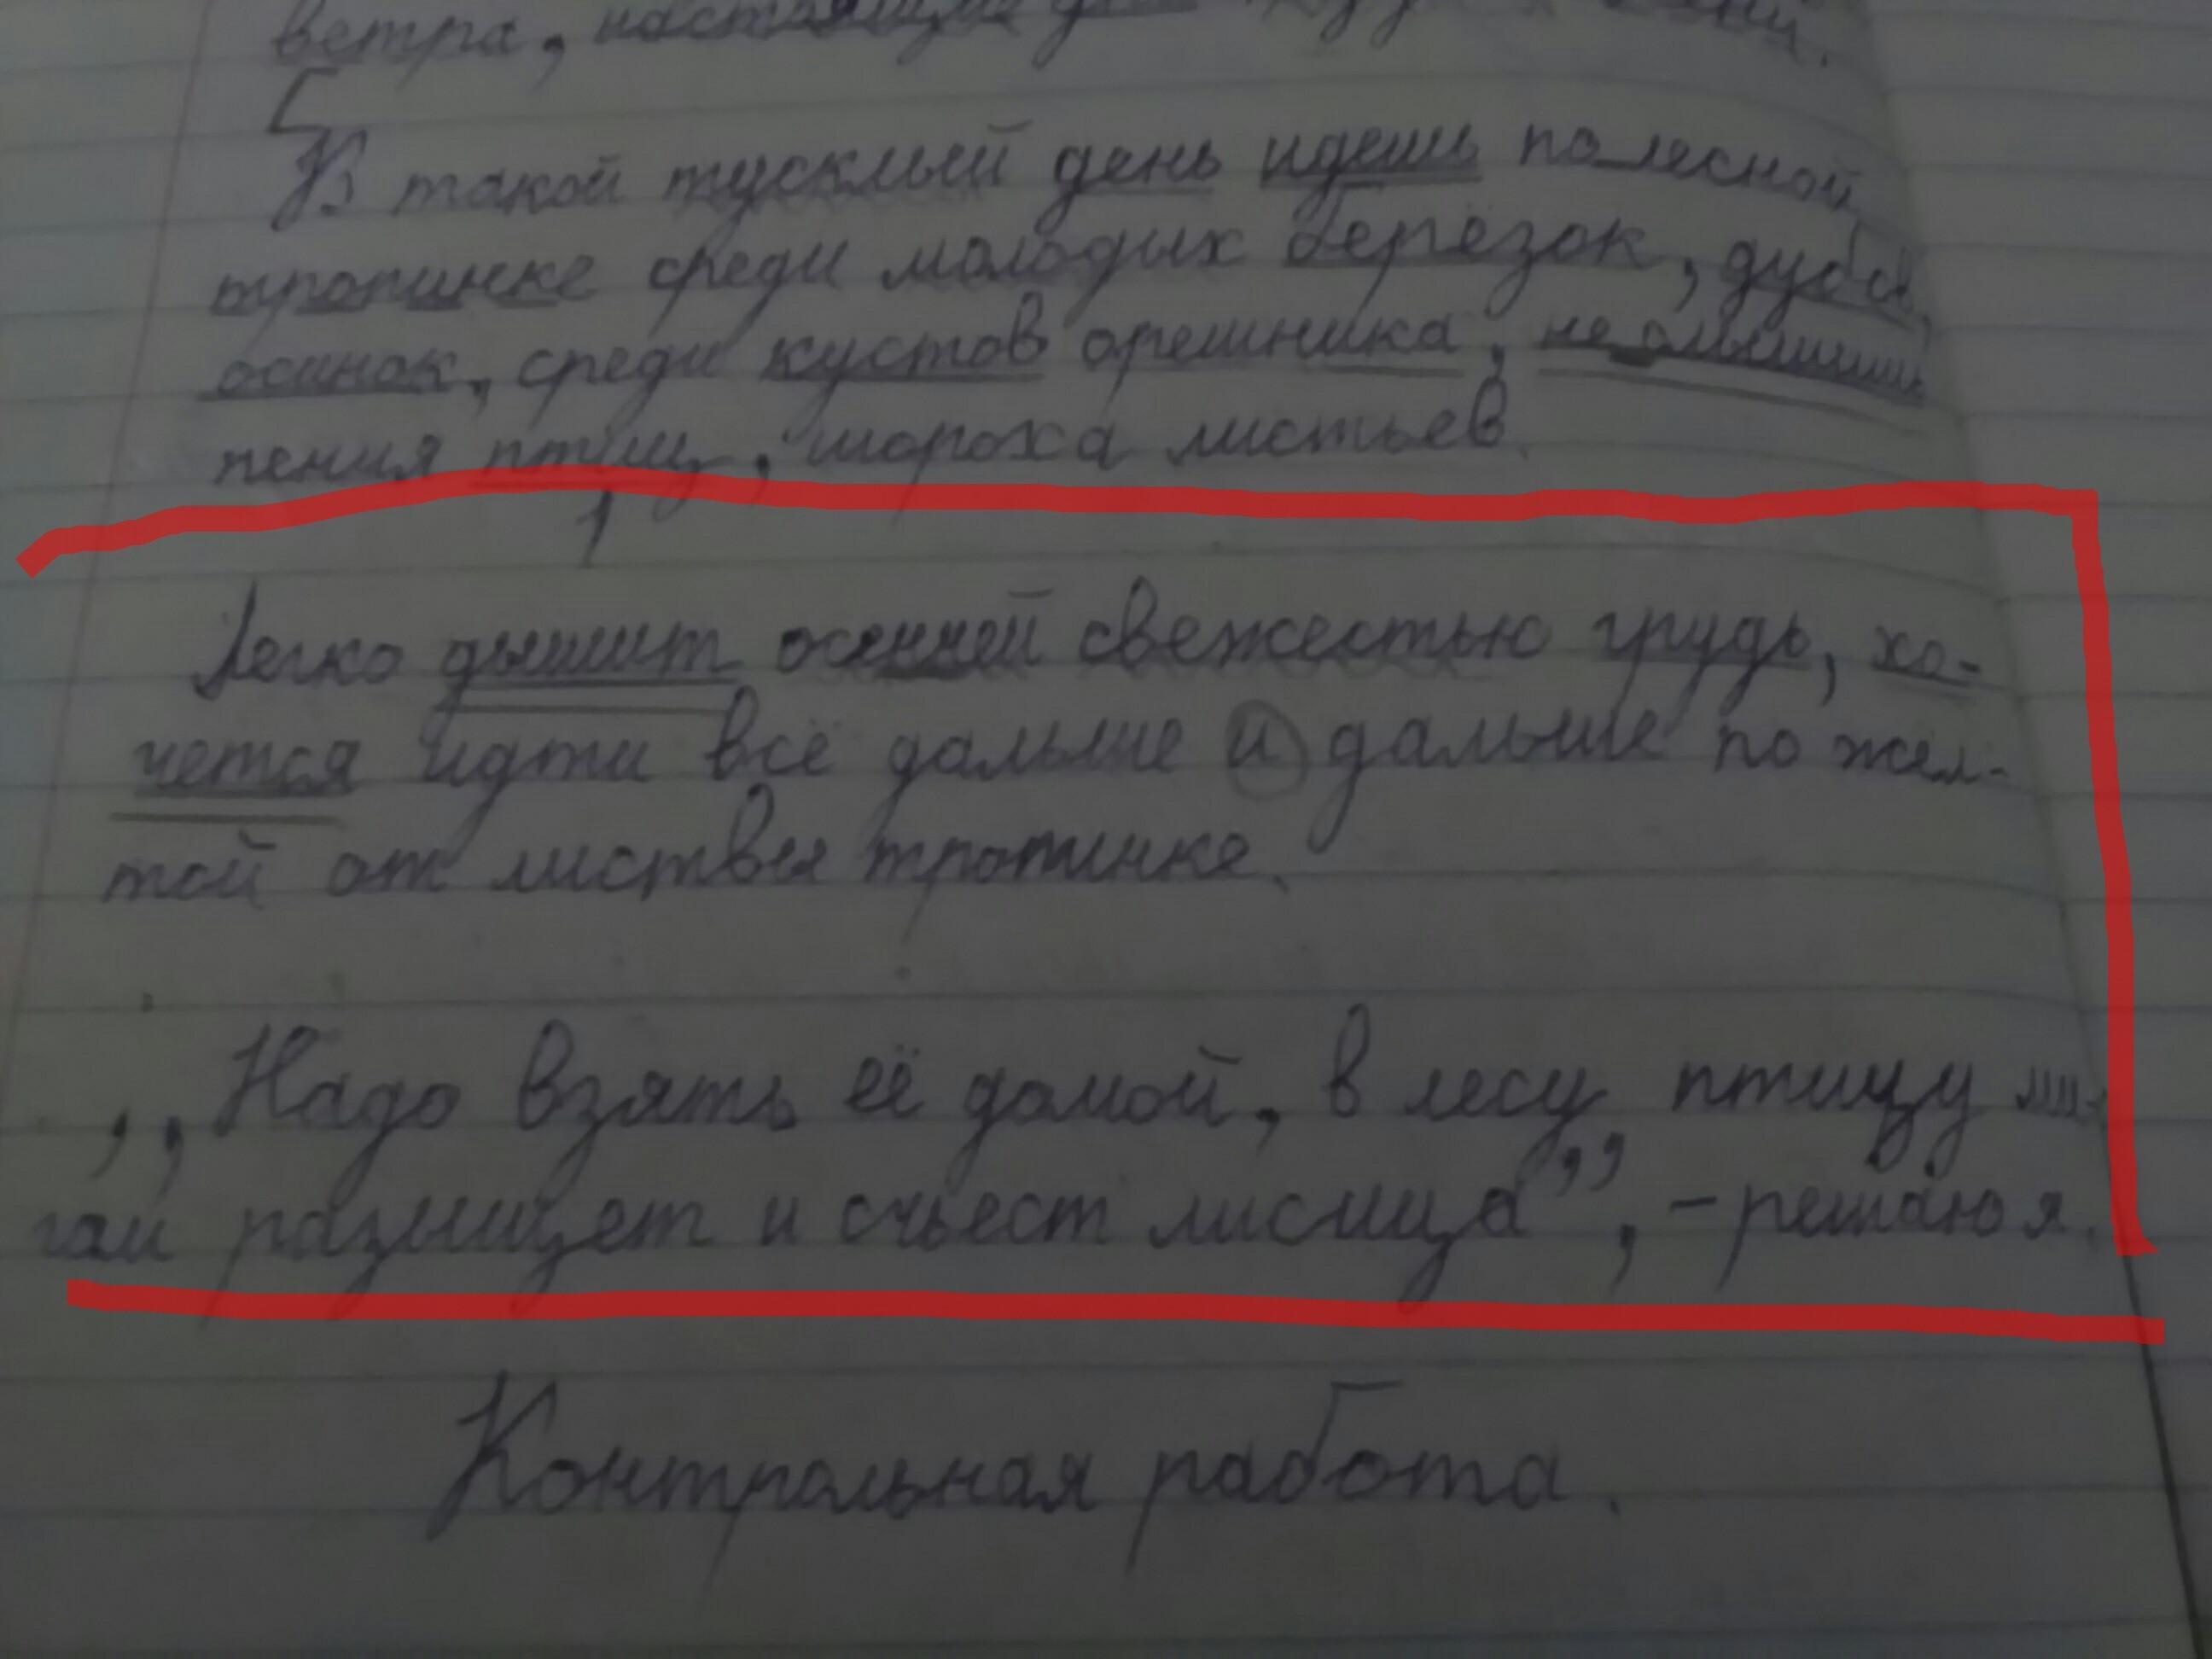 ветра, настоящий
В такой тусклый день идешь по лесной
тропинке среди молодых берёзок, дубов,
осинок, среди кустов орешника, не слышишь
пения птиц, шороха листьев.
Легко дышит осенней свежестью грудь, хо-
чется идти всё дальше и дальше по жел-
той от листвы тропинке.
,,Надо взять её домой, в лесу птицу ми-
гом разыщет и счьест лисица”, - решаю я.
Контрольная работа.